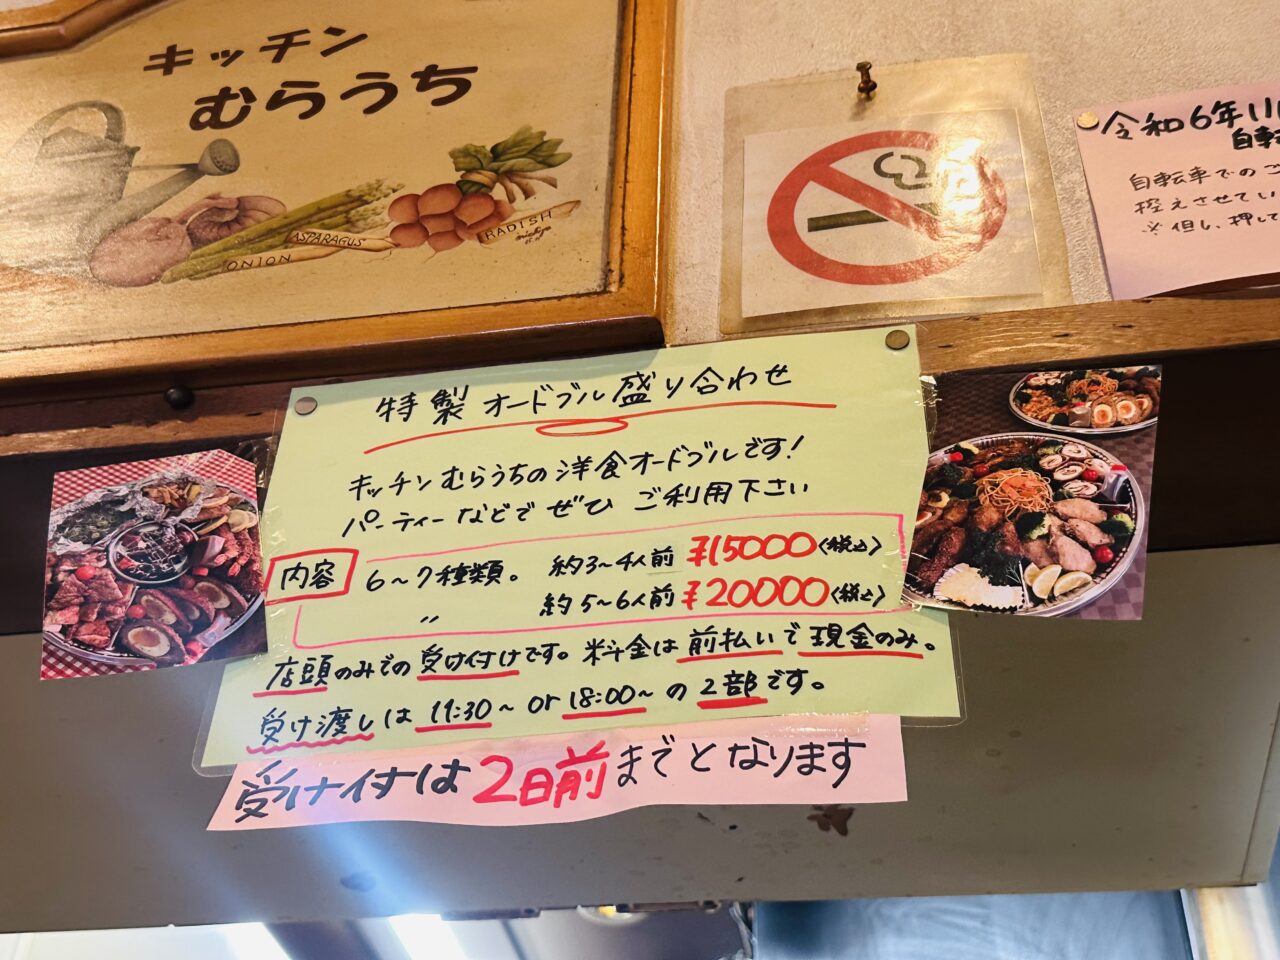 キッチン
むらうち
ASPARAGUS
ONION
RADISH
令和6年11
自転
自転車でのご
控えさせてい
※但し、押して
特製オードブル盛り合わせ
キッチンむらうちの洋食オードブルです!
パーティーなどでぜひご利用下さい
内容 6~7種類。 約3~4人前 ¥15000〈税込〉
〃 約5~6人前 ¥20000〈税込〉
店頭のみでの受け付けです。料金は前払いで現金のみ。
受け渡しは 11:30~ or 18:00~ の2部です。
受け付は2日前までとなります